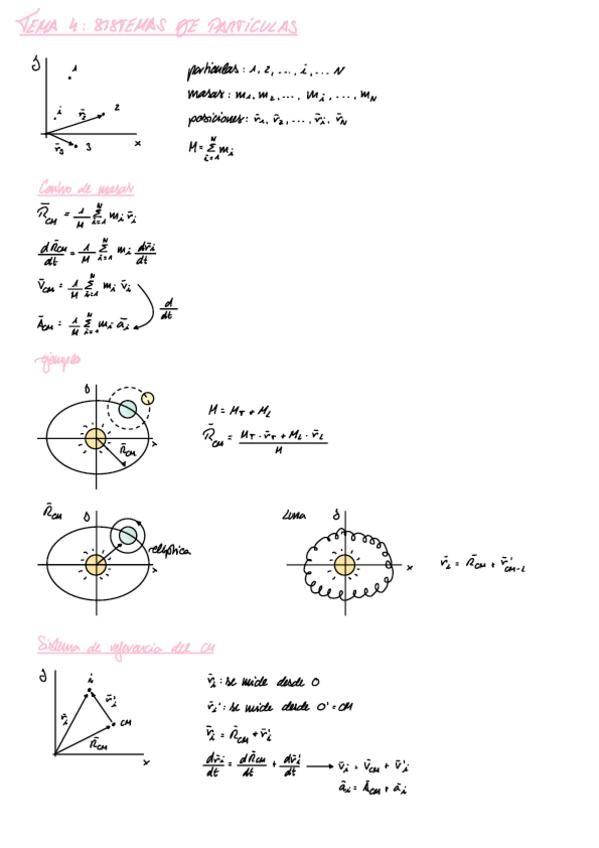 TEMA 4: SISTEMAS DE PARTÍCULAS
y
1
i
r̄₂
2
r̄₃
3
x
partículas: 1, 2, ..., i, ... N
masas: m₁, m₂, ..., mᵢ, ..., m_N
posiciones: r̄₁, r̄₂, ..., r̄ᵢ, r̄_N
M = Σ_{i=1}^{N} mᵢ
Centro de masas
R̄_CM = 1/M Σ_{i=1}^{N} mᵢ r̄ᵢ
dR̄_CM/dt = 1/M Σ_{i=1}^{N} mᵢ dr̄ᵢ/dt
V̄_CM = 1/M Σ_{i=1}^{N} mᵢ v̄ᵢ
d/dt
Ā_CM = 1/M Σ_{i=1}^{N} mᵢ āᵢ
ejemplo
R̄_CM
M = M_T + M_L
R̄_CM = (M_T · r̄_T + M_L · r̄_L)/M
R̄_CM
elíptica
Luna
y
x
r̄_L = R̄_CM + r̄'_CM-L
Sistema de referencia del CM
y
i
r̄ᵢ
r̄'ᵢ
CM
R̄_CM
x
r̄ᵢ: se mide desde O
r̄ᵢ': se mide desde O' = CM
r̄ᵢ = R̄_CM + r̄'ᵢ
dr̄ᵢ/dt = dR̄_CM/dt + dr̄'ᵢ/dt → v̄ᵢ = V̄_CM + v̄'ᵢ
āᵢ = Ā_CM + āᵢ